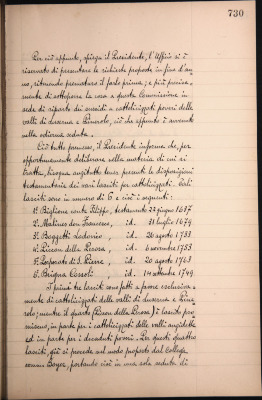 730
Per ciò appunto, spiega il Presidente, l'Uffizio si è
riservato di presentare le richieste proposte in fine d'an
no, ritenendo prematuro il farlo prima; e più precisa-
mente di sottoporre la cosa a questa Commissione in
sede di riparto dei sussidi a cattolizzati poveri delle
valli di Luserna e Pinerolo, ciò che appunto è avvenuto
nella odierna seduta.
Ciò tutto premesso, il Presidente informa che, per
opportunamente deliberare nella materia di cui si
tratta, bisogna anzitutto tener presenti le disposizioni
testamentarie dei varii lasciti per cattolizzati. Tali
lasciti sono in numero di 6 e cioè i seguenti:
1° Biglione conte Filippo, testamento 22 giugno 1687
2° Malines don Francesco, id. 31 luglio 1674
3° Boggetti Lodovico, id. 26 agosto 1733
4° Piccon della Perosa, id. 6 novembre 1753
5° Isnardi di S. Pierre, id. 20 agosto 1763
6° Brigna id. 14 ottobre 1749
I primi tre lasciti sono fatti a favore esclusiva-
mente di cattolizzati delle valli di Luserna e Pine
rolo; mentre il quarto (Piccon della Perosa) è lascito pro
miscuo, in parte per i cattolizzati delle valli anzidette
ed in parte per i decaduti poveri. Per questi quattro
lasciti, già si procede nel modo proposto dal Collega
comm. Boyer, portando cioè in una sola seduta di